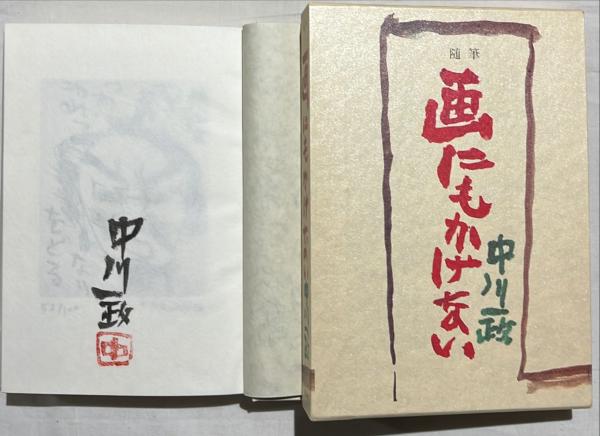 中川一政
中
随筆
画にもかけない
中川一政